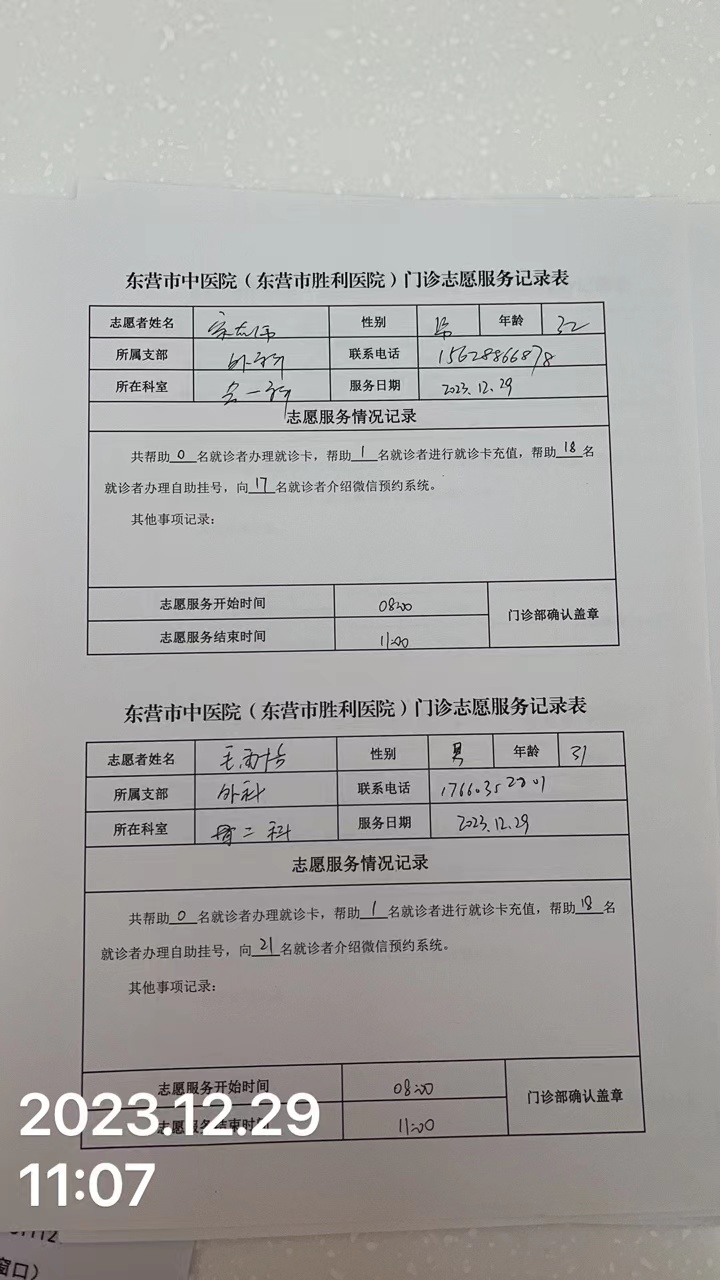 东营市中医院（东营市胜利医院）门诊志愿服务记录表
志愿者姓名 性别 男 年龄 32
所属支部 外科 联系电话 15628866878
所在科室 服务日期 2023.12.29
志愿服务情况记录
共帮助0名就诊者办理就诊卡，帮助1名就诊者进行就诊卡充值，帮助18名
就诊者办理自助挂号，向17名就诊者介绍微信预约系统。
其他事项记录：
志愿服务开始时间 08:00
门诊部确认盖章
志愿服务结束时间 11:00
东营市中医院（东营市胜利医院）门诊志愿服务记录表
志愿者姓名 性别 男 年龄 31
所属支部 外科 联系电话
所在科室 骨二科 服务日期 2023.12.29
志愿服务情况记录
共帮助0名就诊者办理就诊卡，帮助1名就诊者进行就诊卡充值，帮助18名
就诊者办理自助挂号，向21名就诊者介绍微信预约系统。
其他事项记录：
志愿服务开始时间 08:00
门诊部确认盖章
志愿服务结束时间 11:00
2023.12.29
11:07
窗口）